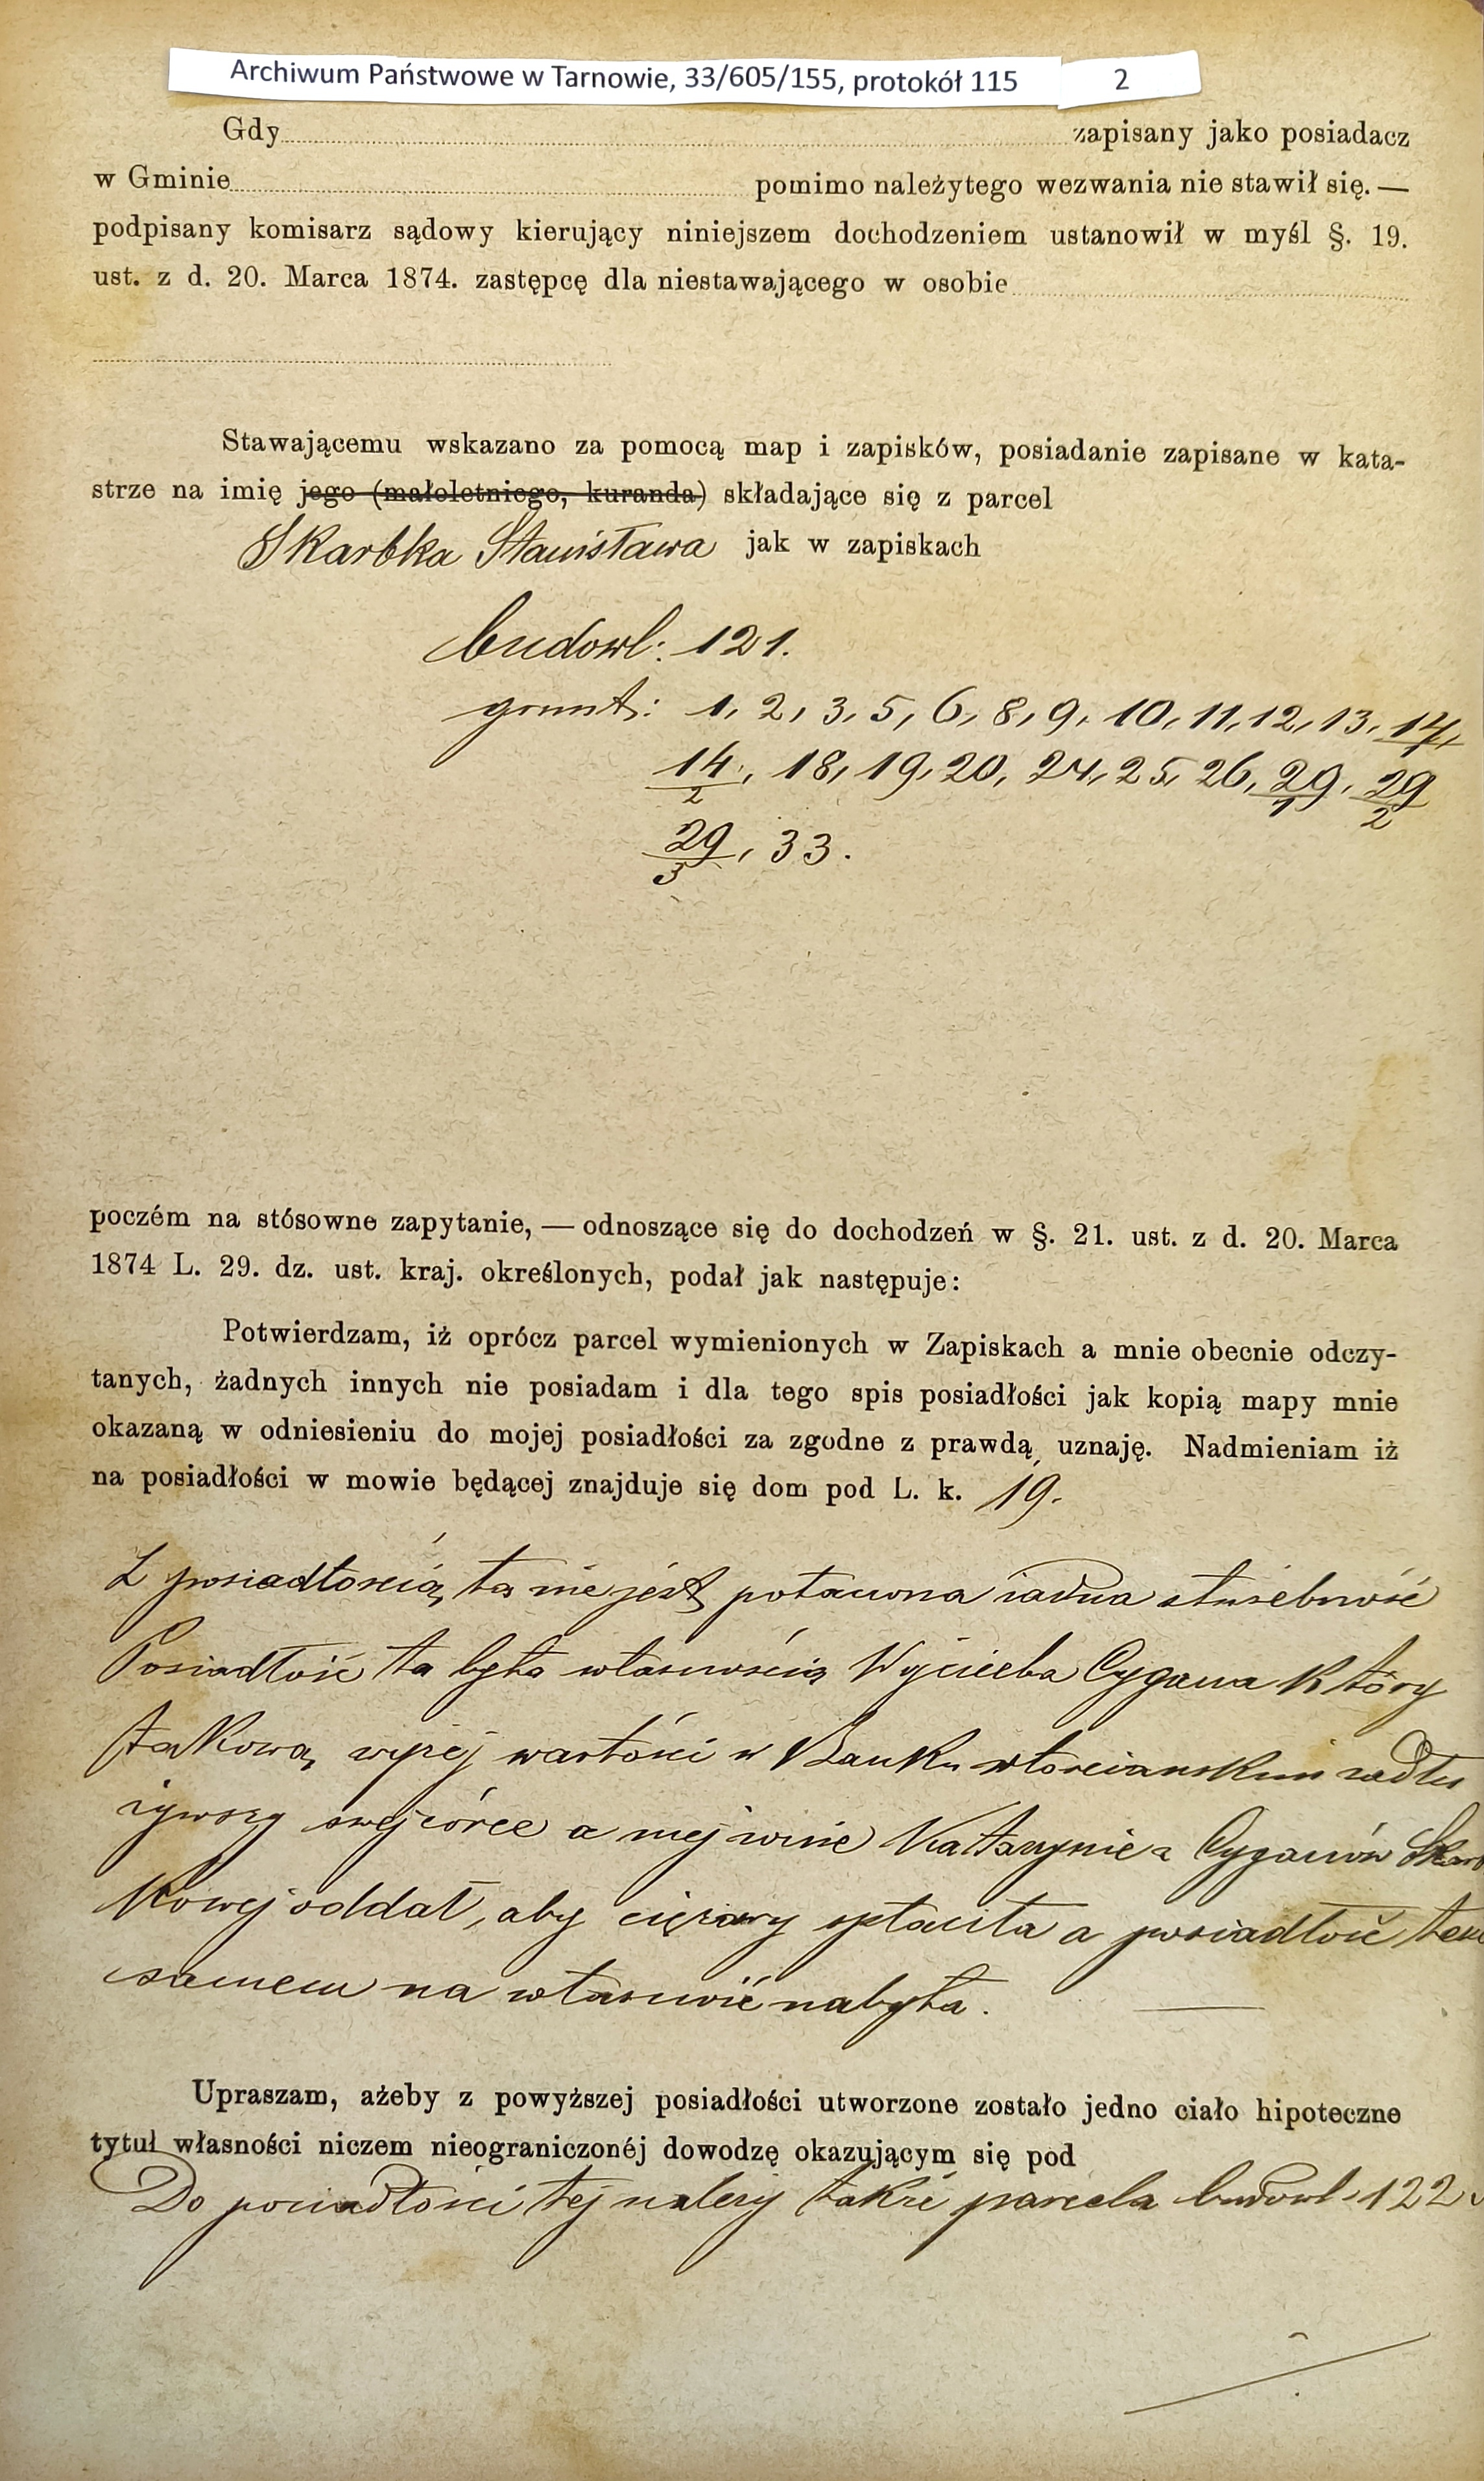 Archiwum Państwowe w Tarnowie, 33/605/155, protokół 115 2
Gdy zapisany jako posiadacz
w Gminie pomimo należytego wezwania nie stawił się. —
podpisany komisarz sądowy kierujący niniejszem dochodzeniem ustanowił w myśl §. 19.
ust. z d. 20. Marca 1874. zastępcę dla niestawającego w osobie
Stawającemu wskazano za pomocą map i zapisków, posiadanie zapisane w kata-
strze na imię jego (małoletniego, kuranda) składające się z parcel
Skarbka Stanisława jak w zapiskach
budowl: 121.
grunt: 1, 2, 3, 5, 6, 8, 9, 10, 11, 12, 13, 14/1,
14/2, 18, 19, 20, 24, 25, 26, 29/1, 29/2
29/3, 33.
poczém na stósowne zapytanie, — odnoszące się do dochodzeń w §. 21. ust. z d. 20. Marca
1874 L. 29. dz. ust. kraj. określonych, podał jak następuje:
Potwierdzam, iż oprócz parcel wymienionych w Zapiskach a mnie obecnie odczy-
tanych, żadnych innych nie posiadam i dla tego spis posiadłości jak kopią mapy mnie
okazaną w odniesieniu do mojej posiadłości za zgodne z prawdą uznaję. Nadmieniam iż
na posiadłości w mowie będącej znajduje się dom pod L. k. 19.
Z posiadłością tą nie jest połaczona żadna służebność
Posiadłość ta była własnością Wojcieha Cygana który
takową wyżej wartości w Banku włościanskim zadłu
żywszy swej córce a mej żonie Katarzynie z Cyganów Skarb
kowej oddał, aby ciężary spłaciła a posiadłość tem
samem na własność nabyła.
Upraszam, ażeby z powyższej posiadłości utworzone zostało jedno ciało hipoteczne
tytuł własności niczem nieograniczonéj dowodzę okazującym się pod
Do posiadłości tej należy także parcela budowl. 122.